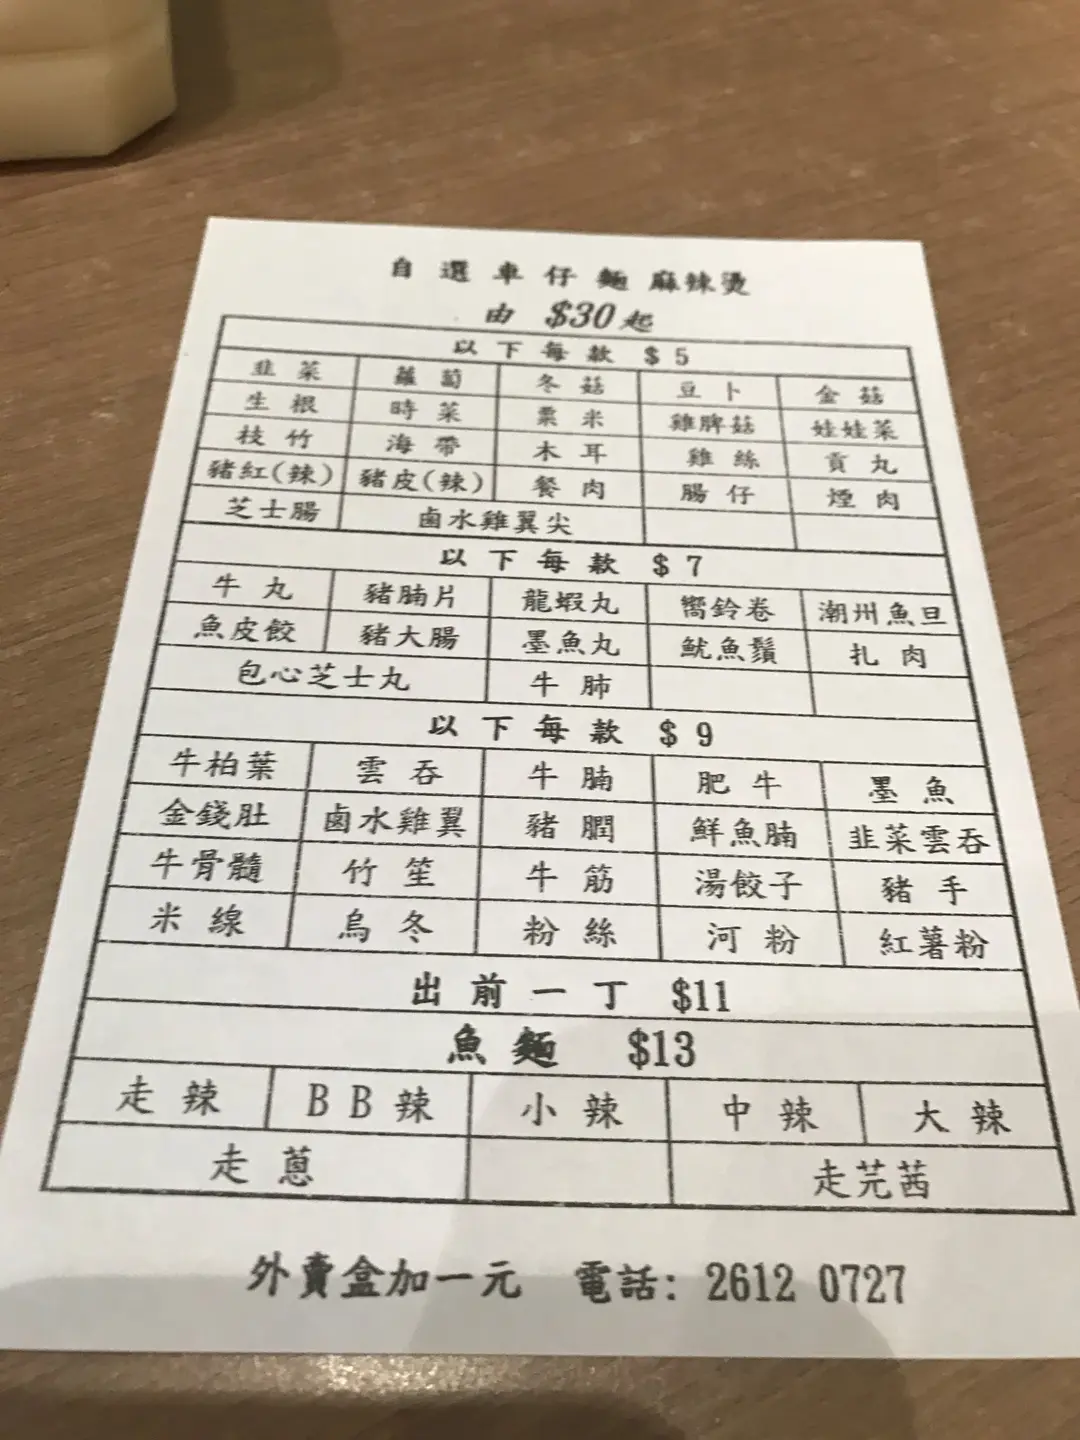 自選車仔麵麻辣燙
由 $30起
以下每款 $5
韭菜 蘿蔔 冬菇 豆卜 金菇
生根 時菜 粟米 雞脾菇 娃娃菜
枝竹 海帶 木耳 雞絲 貢丸
豬紅(辣) 豬皮(辣) 餐肉 腸仔 煙肉
芝士腸 鹵水雞翼尖
以下每款 $7
牛丸 豬腩片 龍蝦丸 嚮鈴卷 潮州魚旦
魚皮餃 豬大腸 墨魚丸 魷魚鬚 扎肉
包心芝士丸 牛肺
以下每款 $9
牛柏葉 雲吞 牛腩 肥牛 墨魚
金錢肚 鹵水雞翼 豬膶 鮮魚腩 韭菜雲吞
牛骨髓 竹笙 牛筋 湯餃子 豬手
米線 烏冬 粉絲 河粉 紅薯粉
出前一丁 $11
魚麵 $13
走辣 BB辣 小辣 中辣 大辣
走蔥 走芫茜
外賣盒加一元 電話: 2612 0727